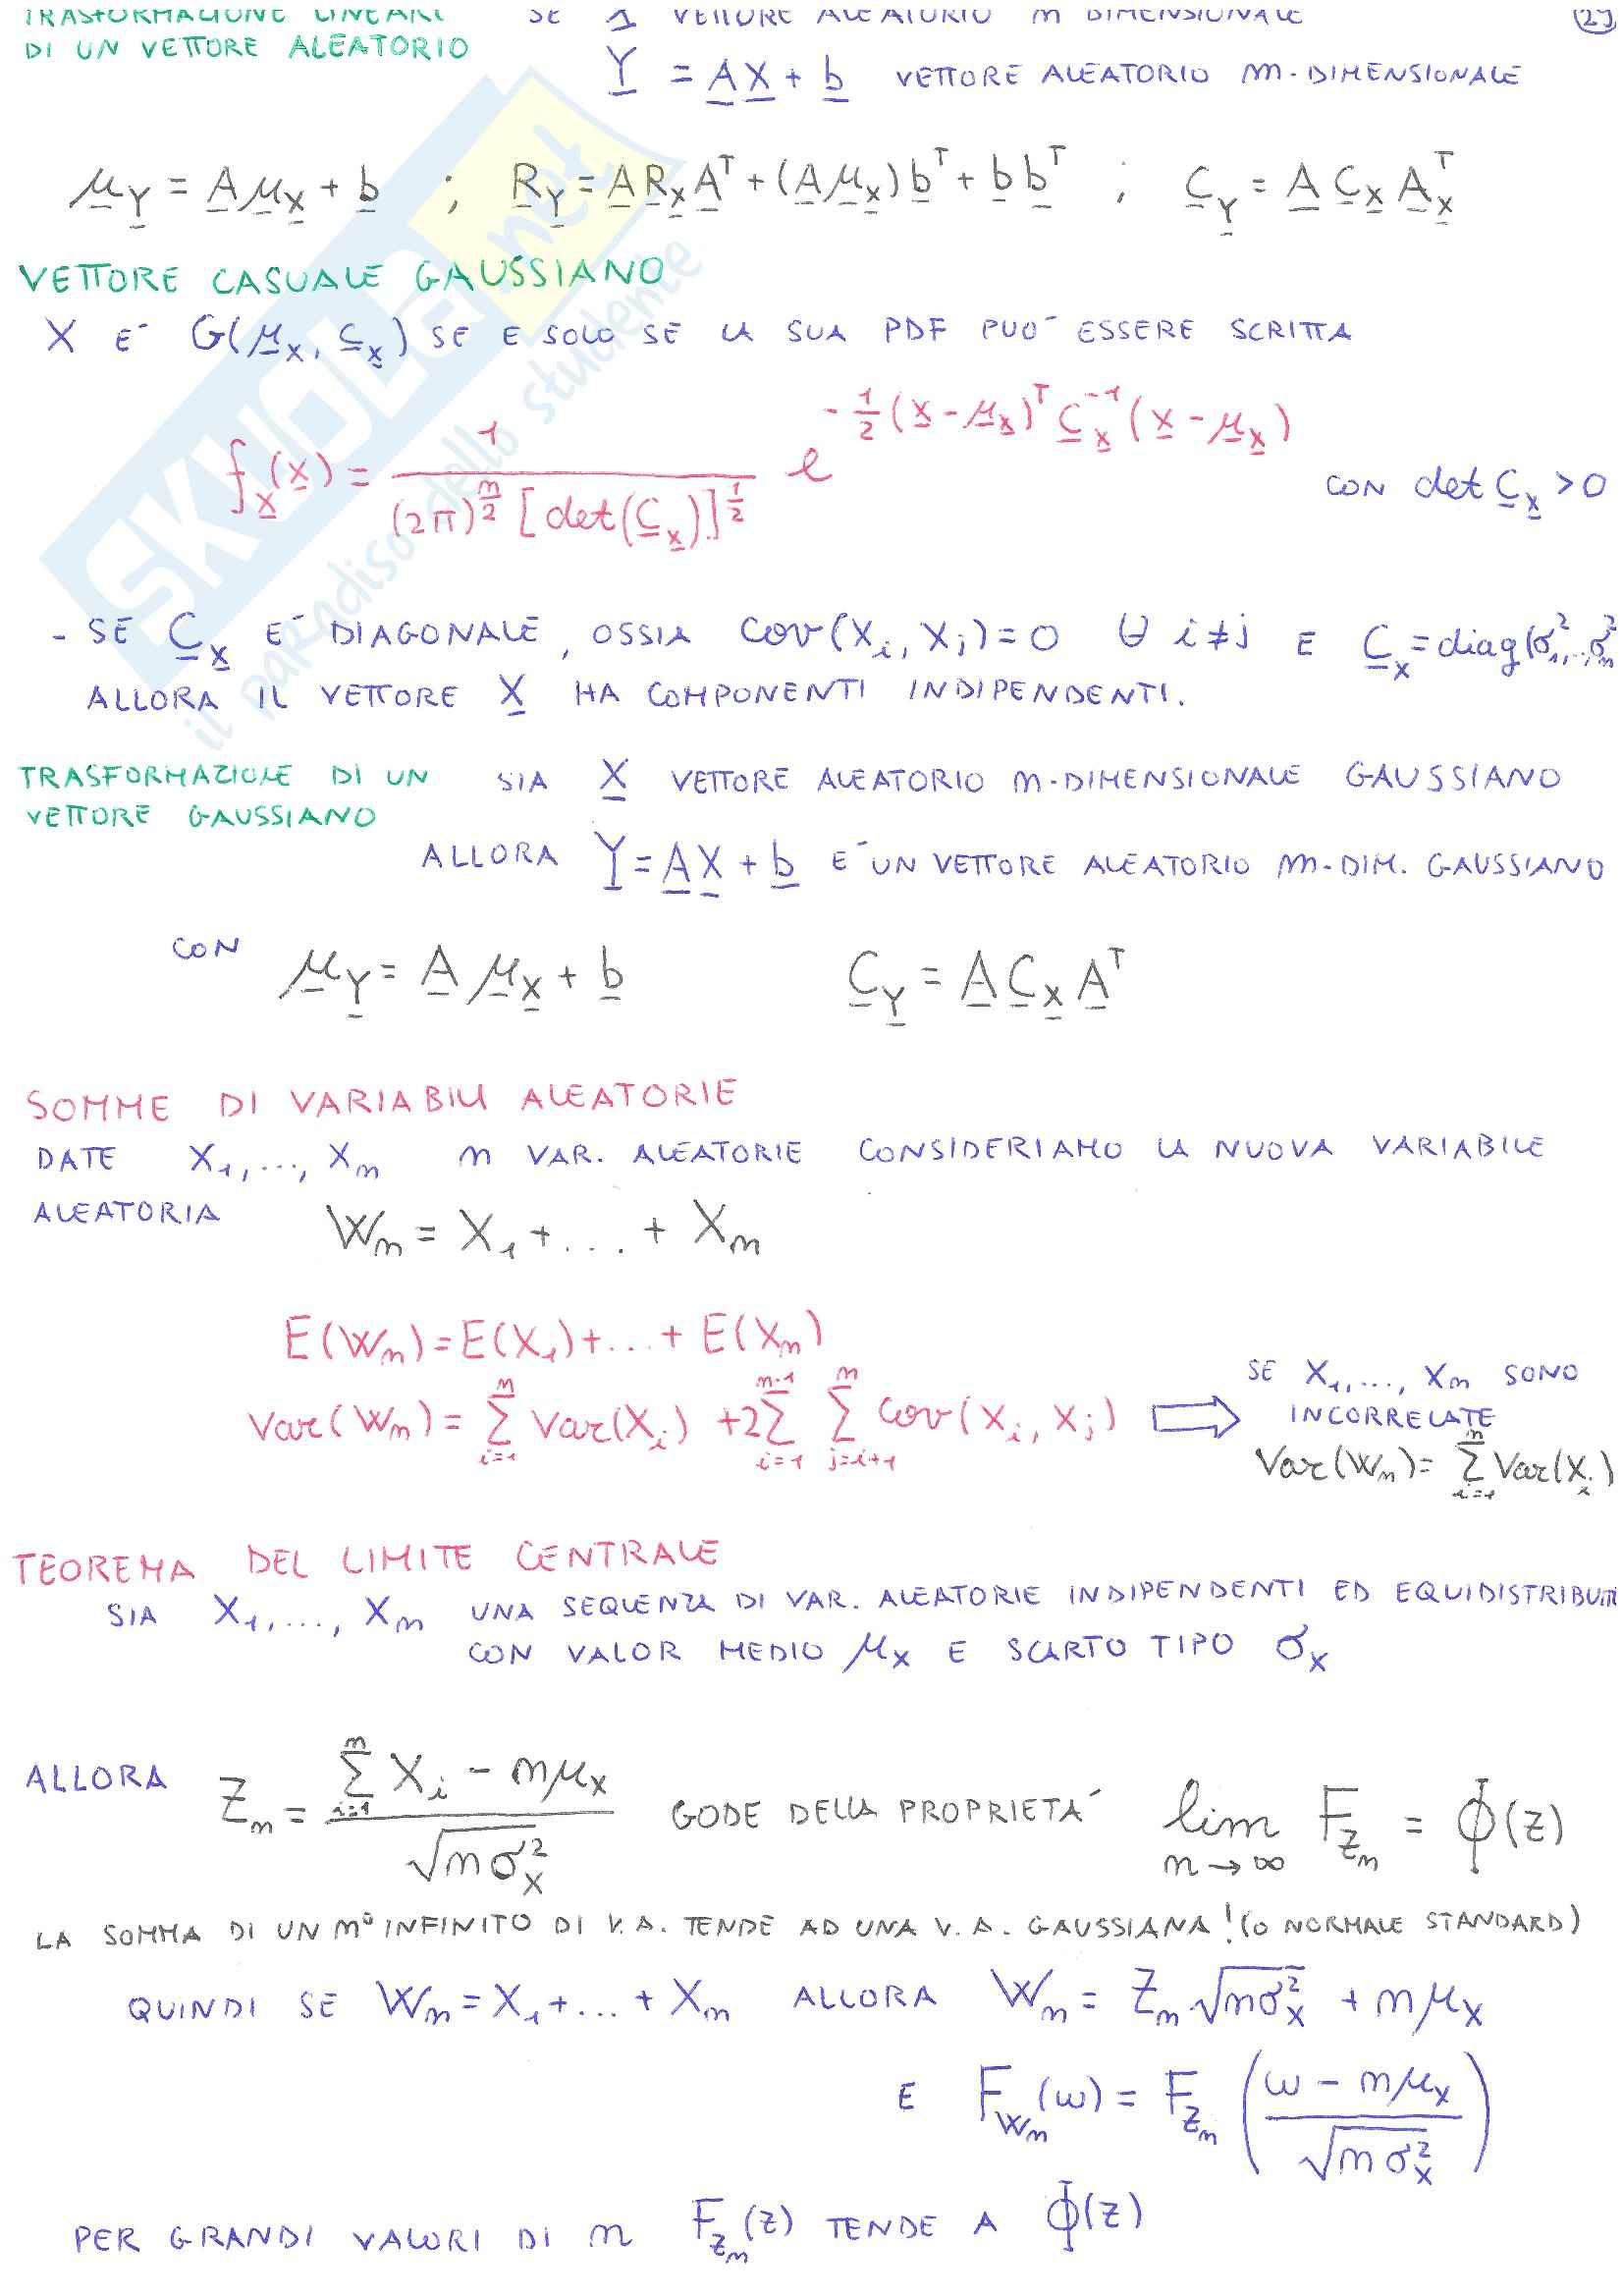 TRASFORMAZIONE LINEARE SE X VETTORE ALEATORIO n DIMENSIONALE
DI UN VETTORE ALEATORIO
Y = AX + b VETTORE ALEATORIO m-DIMENSIONALE
μ_Y = Aμ_X + b ; R_Y = A R_X A^T + (Aμ_X)b^T + b b^T ; C_Y = A C_X A_X^T
VETTORE CASUALE GAUSSIANO
X E' G(μ_X, C_X) SE E SOLO SE LA SUA PDF PUO' ESSERE SCRITTA
f_X(x) = 1 / ((2π)^(n/2) [det(C_X)]^(1/2)) e^(-1/2 (x-μ_X)^T C_X^-1 (x-μ_X)) CON det C_X > 0
- SE C_X E' DIAGONALE, OSSIA cov(X_i, X_j)=0 ∀ i≠j E C_X = diag(σ_1^2,..,σ_n^2
ALLORA IL VETTORE X HA COMPONENTI INDIPENDENTI.
TRASFORMAZIONE DI UN SIA X VETTORE ALEATORIO n-DIMENSIONALE GAUSSIANO
VETTORE GAUSSIANO
ALLORA Y = AX + b E' UN VETTORE ALEATORIO m-DIM. GAUSSIANO
CON μ_Y = A μ_X + b C_Y = A C_X A^T
SOMME DI VARIABILI ALEATORIE
DATE X_1,..., X_n n VAR. ALEATORIE CONSIDERIAMO LA NUOVA VARIABILE
ALEATORIA W_n = X_1 + ... + X_n
E(W_n) = E(X_1) + ... + E(X_n)
Var(W_n) = Σ_{i=1}^{n} Var(X_i) + 2 Σ_{i=1}^{n-1} Σ_{j=i+1}^{n} Cov(X_i, X_j) ⇒ SE X_1,..., X_n SONO
INCORRELATE
Var(W_n) = Σ_{i=1}^{n} Var(X_i)
TEOREMA DEL LIMITE CENTRALE
SIA X_1,..., X_n UNA SEQUENZA DI VAR. ALEATORIE INDIPENDENTI ED EQUIDISTRIBUITE
CON VALOR MEDIO μ_X E SCARTO TIPO σ_X
ALLORA Z_n = (Σ_{i=1}^{n} X_i - nμ_X) / √(nσ_X^2) GODE DELLA PROPRIETA' lim_{n→∞} F_{Z_n} = Φ(z)
LA SOMMA DI UN n° INFINITO DI V.A. TENDE AD UNA V.A. GAUSSIANA! (O NORMALE STANDARD)
QUINDI SE W_n = X_1 + ... + X_n ALLORA W_n = Z_n √(nσ_X^2) + nμ_X
E F_{W_n}(ω) = F_{Z_n}((ω - nμ_X) / √(nσ_X^2))
PER GRANDI VALORI DI n F_{Z_n}(z) TENDE A Φ(z)
SKUOLA.net
il paradiso dello studente